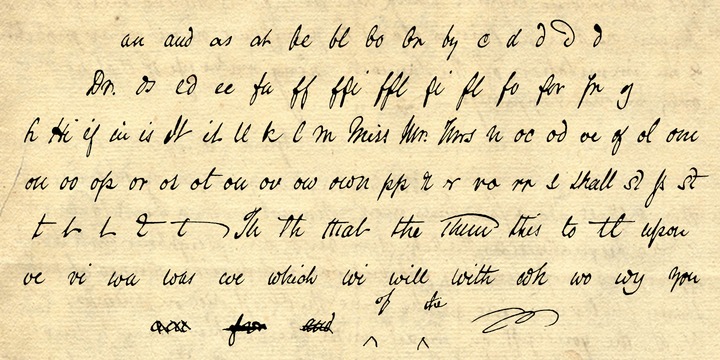 an and as at be bl bo br by c d d d d
Dr. ds ed ee fa ff ffi ffl fi fl fo for fr g
h Hi if in is It it ll k l m Miss Mr. Mrs n oc od oe of ol om
on oo op or os ot ou ov ow own pp r r ro rr s shall st ss st
t t t t t Th th that the Them this to tt upon
ve vi wa was we which wi will with wh wo wy you
of the
and for and ^ ^